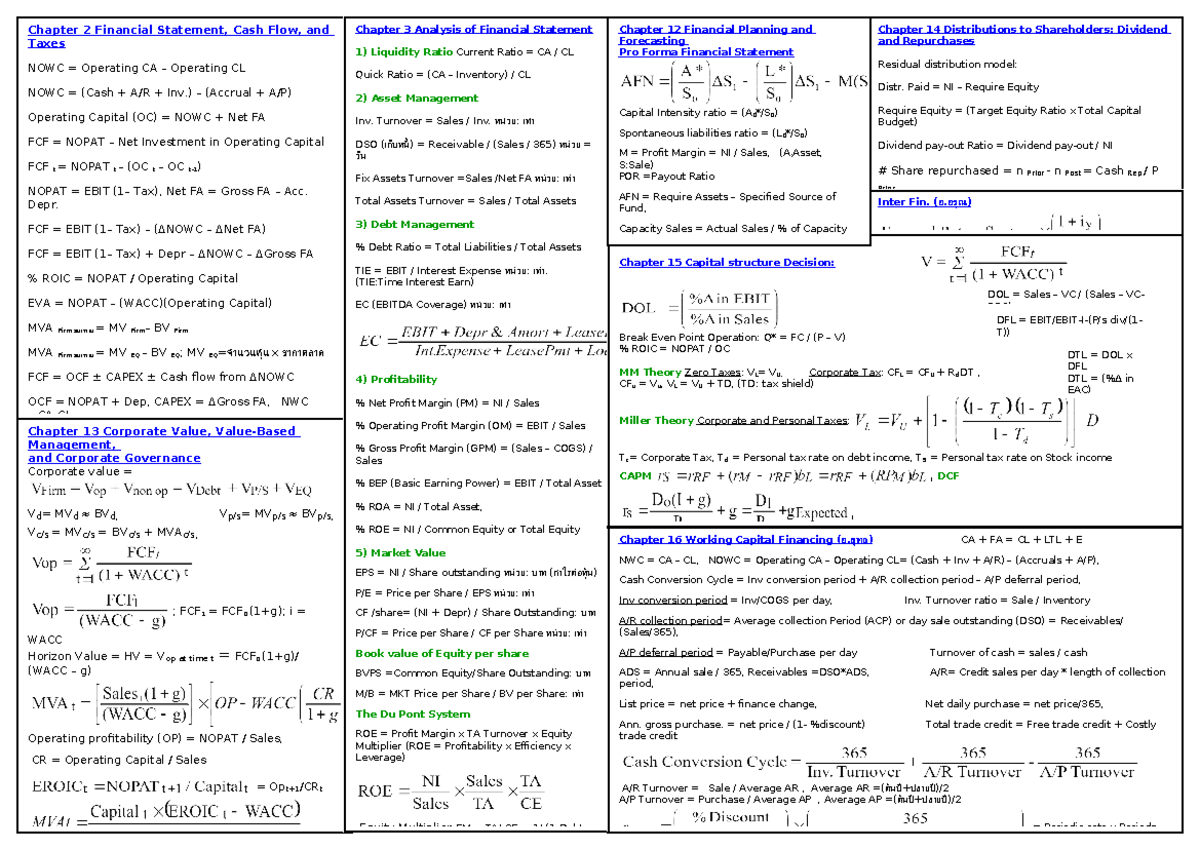 Chapter 2 Financial Statement, Cash Flow, and
Taxes
NOWC = Operating CA – Operating CL
NOWC = (Cash + A/R + Inv.) – (Accrual + A/P)
Operating Capital (OC) = NOWC + Net FA
FCF = NOPAT – Net Investment in Operating Capital
FCF t = NOPAT t – (OC t – OC t-1)
NOPAT = EBIT (1– Tax), Net FA = Gross FA – Acc.
Depr.
FCF = EBIT (1– Tax) – (ΔNOWC – ΔNet FA)
FCF = EBIT (1– Tax) + Depr – ΔNOWC – ΔGross FA
% ROIC = NOPAT / Operating Capital
EVA = NOPAT – (WACC)(Operating Capital)
MVA = MV Firm – BV Firm
MVA = MV EQ – BV EQ; MV EQ=จำนวนหุ้น x ราคาตลาด
FCF = OCF ± CAPEX ± Cash flow from ΔNOWC
OCF = NOPAT + Dep, CAPEX = ΔGross FA, NWC
Chapter 13 Corporate Value, Value-Based
Management,
and Corporate Governance
Corporate value =
V Firm = V op – V non op – V Debt + V P/S + V EQ
Vd= MVd ≈ BVd, Vp/s= MVp/s ≈ BVp/s,
Vc/s = MVc/s = BVc/s + MVAc/s,
Vop = ∞ Σ t=1 FCFt / (1 + WACC) t
Vop = FCF1 / (WACC – g) ; FCF1 = FCF0(1+g); i =
WACC
Horizon Value = HV = V op at time t = FCF0(1+g)/
(WACC – g)
MVA t = [Sales t (1 + g) / (WACC - g)] × [OP – WACC (CR / 1 + g
Operating profitability (OP) = NOPAT / Sales,
CR = Operating Capital / Sales
EROIC t = NOPAT t+1 / Capital t = OPt+1/CRt
MVAt = Capital t × (EROIC t - WACC)
Chapter 3 Analysis of Financial Statement
1) Liquidity Ratio Current Ratio = CA / CL
Quick Ratio = (CA – Inventory) / CL
2) Asset Management
Inv. Turnover = Sales / Inv. หน่วย: เท่า
DSO (เก็บหนี้) = Receivable / (Sales / 365) หน่วย =
วัน
Fix Assets Turnover =Sales /Net FA หน่วย: เท่า
Total Assets Turnover = Sales / Total Assets
3) Debt Management
% Debt Ratio = Total Liabilities / Total Assets
TIE = EBIT / Interest Expense หน่วย: เท่า.
(TIE:Time Interest Earn)
EC (EBITDA Coverage) หน่วย: เท่า
EC = EBIT + Depr & Amort + Lease / Int.Expense + LeasePmt + Loa
4) Profitability
% Net Profit Margin (PM) = NI / Sales
% Operating Profit Margin (OM) = EBIT / Sales
% Gross Profit Margin (GPM) = (Sales – COGS) /
Sales
% BEP (Basic Earning Power) = EBIT / Total Asset
% ROA = NI / Total Asset,
% ROE = NI / Common Equity or Total Equity
5) Market Value
EPS = NI / Share outstanding หน่วย: บาท (กำไรต่อหุ้น)
P/E = Price per Share / EPS หน่วย: เท่า
CF /share= (NI + Depr) / Share Outstanding: บาท
P/CF = Price per Share / CF per Share หน่วย: เท่า
Book value of Equity per share
BVPS =Common Equity/Share Outstanding: บาท
M/B = MKT Price per Share / BV per Share: เท่า
The Du Pont System
ROE = Profit Margin x TA Turnover x Equity
Multiplier (ROE = Profitability x Efficiency x
Leverage)
ROE = NI / Sales × Sales / TA × TA / CE
Chapter 12 Financial Planning and
Forecasting
Pro Forma Financial Statement
AFN = (A* / S0) ΔS1 - (L* / S0) ΔS1 - M(S
Capital Intensity ratio = (A0*/S0)
Spontaneous liabilities ratio = (L0*/S0)
M = Profit Margin = NI / Sales, (A:Asset,
S:Sale)
POR =Payout Ratio
AFN = Require Assets – Specified Source of
Fund,
Capacity Sales = Actual Sales / % of Capacity
Chapter 14 Distributions to Shareholders: Dividend
and Repurchases
Residual distribution model:
Distr. Paid = NI – Require Equity
Require Equity = (Target Equity Ratio xTotal Capital
Budget)
Dividend pay-out Ratio = Dividend pay-out / NI
# Share repurchased = n Prior - n Post = Cash Rep / P
Prior
Inter Fin. (อ.อรุณ)
Chapter 15 Capital structure Decision:
V = ∞ Σ t=1 FCFt / (1 + WACC) t
DOL = (%Δ in EBIT / %Δ in Sales)
DOL = Sales – VC / (Sales – VC-
DFL = EBIT/EBIT-I-(P/s div/(1-
T))
Break Even Point Operation: Q* = FC / (P – V)
% ROIC = NOPAT / OC
DTL = DOL x
DFL
DTL = (%Δ in
EAC)
MM Theory Zero Taxes: VL= VU, Corporate Tax: CFL = CFU + RdDT ,
CFU = VU, VL = VU + TD, (TD: tax shield)
Miller Theory Corporate and Personal Taxes: VL = VU + [1 - ((1 - Tc)(1 - Ts) / 1 - Td)] D
Tc= Corporate Tax, Td = Personal tax rate on debt income, Ts = Personal tax rate on Stock income
CAPM rS = rRF + (rM - rRF)bL = rRF + (RPM)bL , DCF
rs = D0(1 + g) / P + g = D1 / P + gExpected ,
Chapter 16 Working Capital Financing (อ.อรุณ) CA + FA = CL + LTL + E
NWC = CA – CL, NOWC = Operating CA – Operating CL= (Cash + Inv + A/R) – (Accruals + A/P),
Cash Conversion Cycle = Inv conversion period + A/R collection period – A/P deferral period,
Inv conversion period = Inv/COGS per day, Inv. Turnover ratio = Sale / Inventory
A/R collection period= Average collection Period (ACP) or day sale outstanding (DSO) = Receivables/
(Sales/365),
A/P deferral period = Payable/Purchase per day Turnover of cash = sales / cash
ADS = Annual sale / 365, Receivables =DSO*ADS, A/R= Credit sales per day * length of collection
period,
List price = net price + finance change, Net daily purchase = net price/365,
Ann. gross purchase. = net price / (1- %discount) Total trade credit = Free trade credit + Costly
trade credit
Cash Conversion Cycle = 365 / Inv. Turnover + 365 / A/R Turnover - 365 / A/P Turnover
A/R Turnover = Sale / Average AR , Average AR =(ต้นปี+ปลายปี)/2
A/P Turnover = Purchase / Average AP , Average AP =(ต้นปี+ปลายปี)/2
% Discount 365